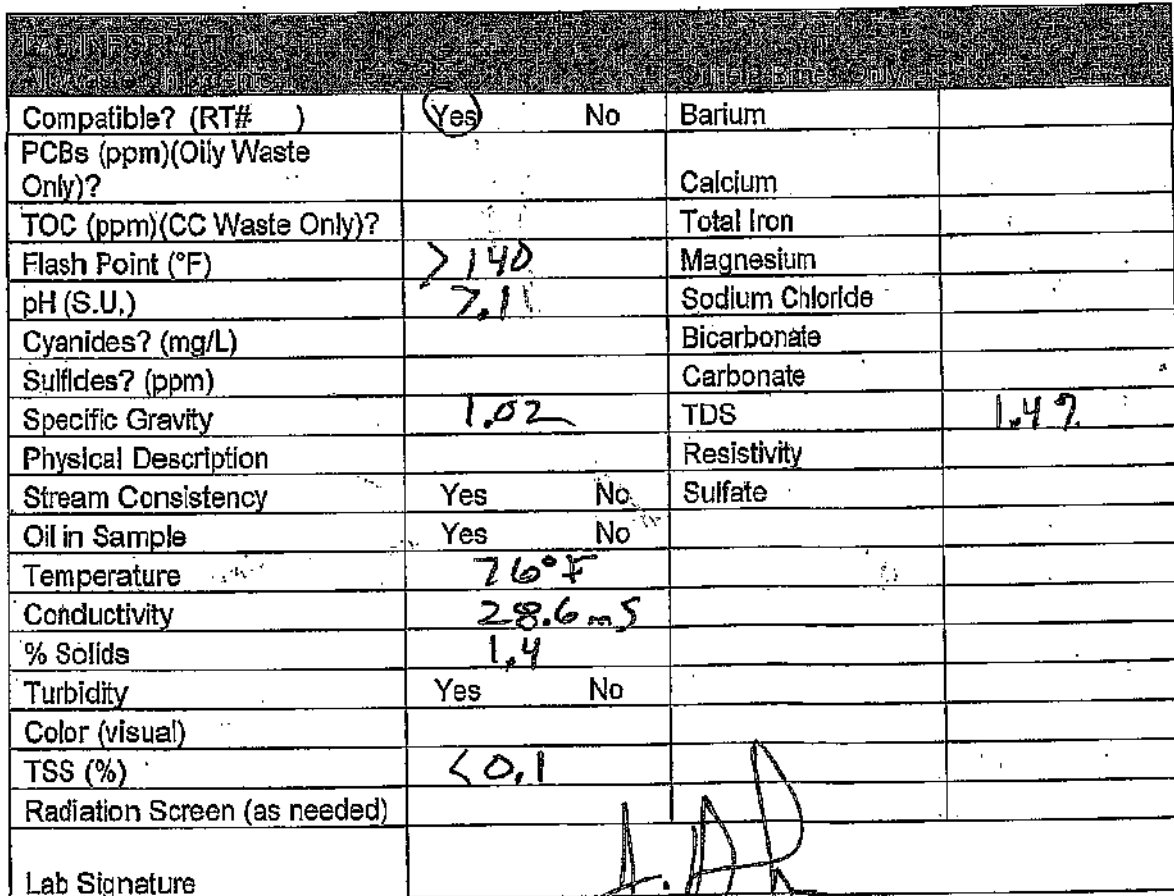 LAB INFORMATION
All Waste Shipments Oilfield Brines Only
Compatible? (RT# ) Yes No Barium
PCBs (ppm)(Oily Waste
Only)? Calcium
TOC (ppm)(CC Waste Only)? Total Iron
Flash Point (°F) >140 Magnesium
pH (S.U.) 7.1 Sodium Chloride
Cyanides? (mg/L) Bicarbonate
Sulfides? (ppm) Carbonate
Specific Gravity 1.02 TDS 1.4%
Physical Description Resistivity
Stream Consistency Yes No Sulfate
Oil in Sample Yes No
Temperature 76°F
Conductivity 28.6 mS
% Solids 1.4
Turbidity Yes No
Color (visual)
TSS (%) <0.1
Radiation Screen (as needed)
Lab Signature